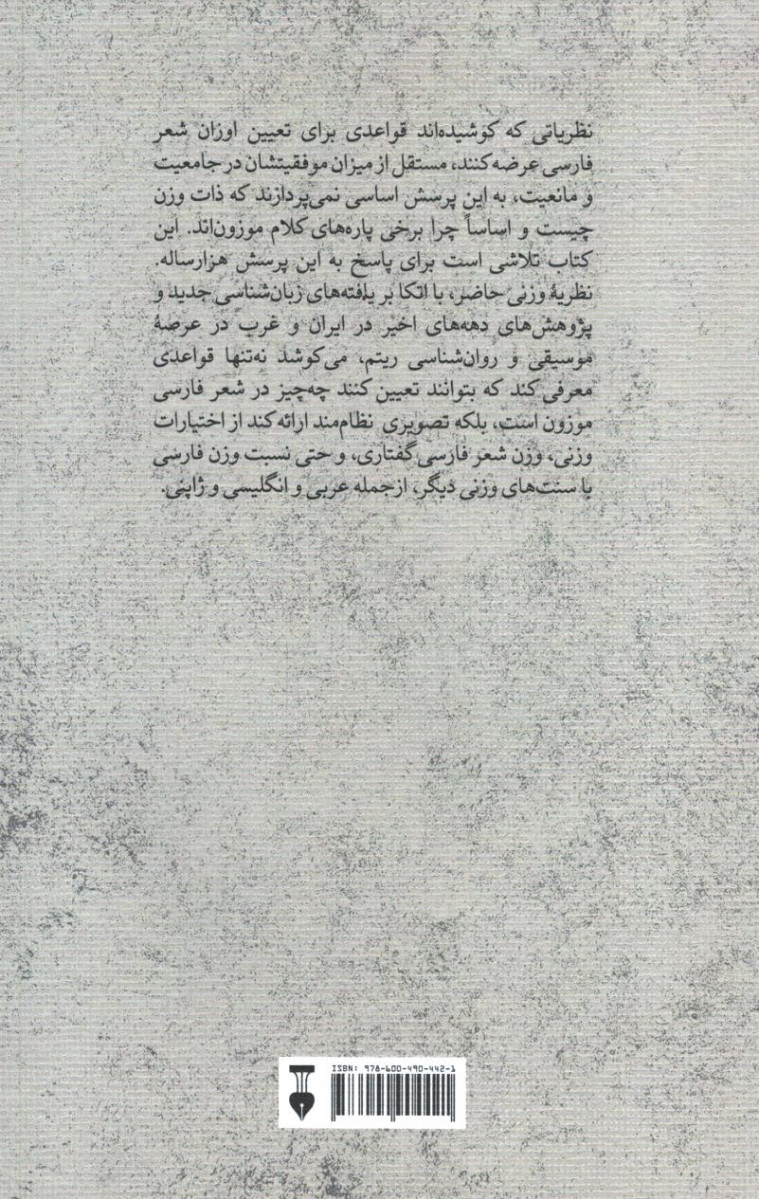 نظریاتی که کوشیده‌اند قواعدی برای تعیین اوزان شعر
فارسی عرضه کنند، مستقل از میزان موفقیتشان در جامعیت
و مانعیت، به این پرسش اساسی نمی‌پردازند که ذات وزن
چیست و اساساً چرا برخی پاره‌های کلام موزون‌اند. این
کتاب تلاشی است برای پاسخ به این پرسش هزارساله.
نظریهٔ وزنی حاضر، با اتکا بر یافته‌های زبان‌شناسی جدید و
پژوهش‌های دهه‌های اخیر در ایران و غرب در عرصهٔ
موسیقی و روان‌شناسی ریتم، می‌کوشد نه‌تنها قواعدی
معرفی کند که بتوانند تعیین کنند چه‌چیز در شعر فارسی
موزون است، بلکه تصویری نظام‌مند ارائه کند از اختیارات
وزنی، وزن شعر فارسی گفتاری، و حتی نسبت وزن فارسی
با سنت‌های وزنی دیگر، ازجمله عربی و انگلیسی و ژاپنی.
ISBN: 978-600-490-442-1